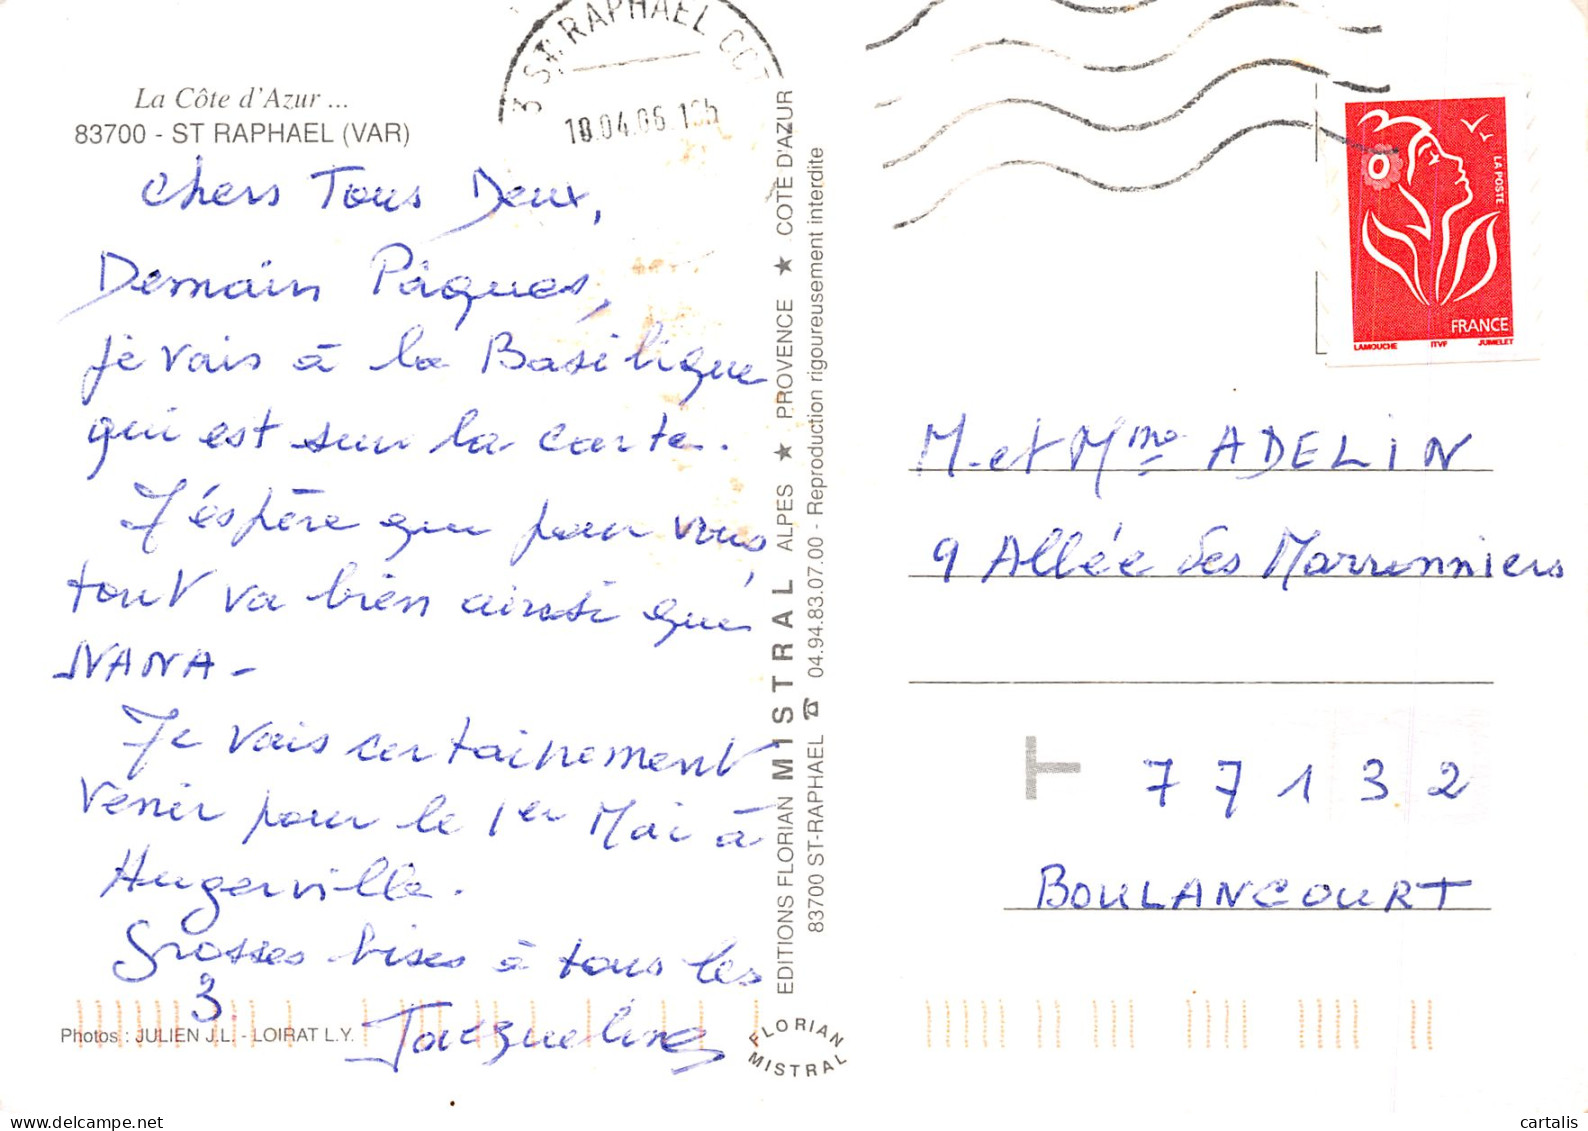 La Côte d'Azur ...
83700 - ST RAPHAEL (VAR)
Chers Tous Deux,
Demain Pâques,
je vais à la Basilique
qui est sur la carte.
J'éspère que pour vous,
tout va bien ainsi que
NANA -
Je vais certainement
venir pour le 1er Mai à
Augerville.
Grosses bises à tous les
3.
Jacqueline
Photos : JULIEN J.L. - LOIRAT L.Y.
3 ST RAPHAEL CCT
18.04.06
EDITIONS FLORIAN MISTRAL ALPES ★ PROVENCE ★ COTE D'AZUR
83700 ST-RAPHAEL ☎ 04.94.83.07.00 - Reproduction rigoureusement interdite
FLORIAN
MISTRAL
LA POSTE
FRANCE
LAMOUCHE ITVF JUMELET
M. et Mme ADELIN
9 Allée des Marronniers
T
77132
BOULANCOURT
cartalis